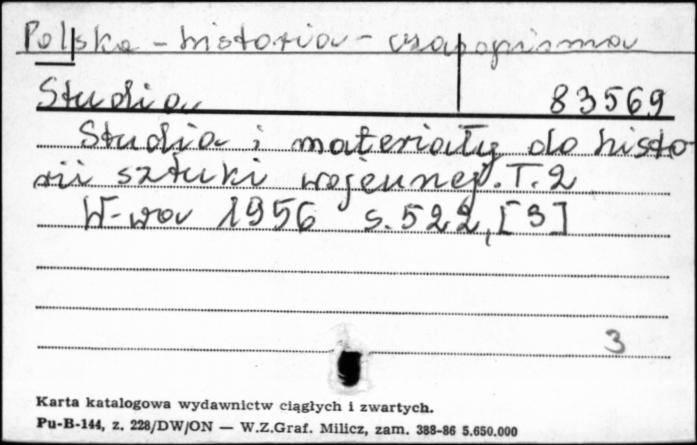 Polska - historia - czasopisma
Studia 83569
Studia i materiały do histo-
rii sztuki wojennej. T. 2
W-wa 1956 s. 522, [3]
3
Karta katalogowa wydawnictw ciągłych i zwartych.
Pu-B-144, z. 228/DW/ON — W.Z.Graf. Milicz, zam. 388-86 5.650.000